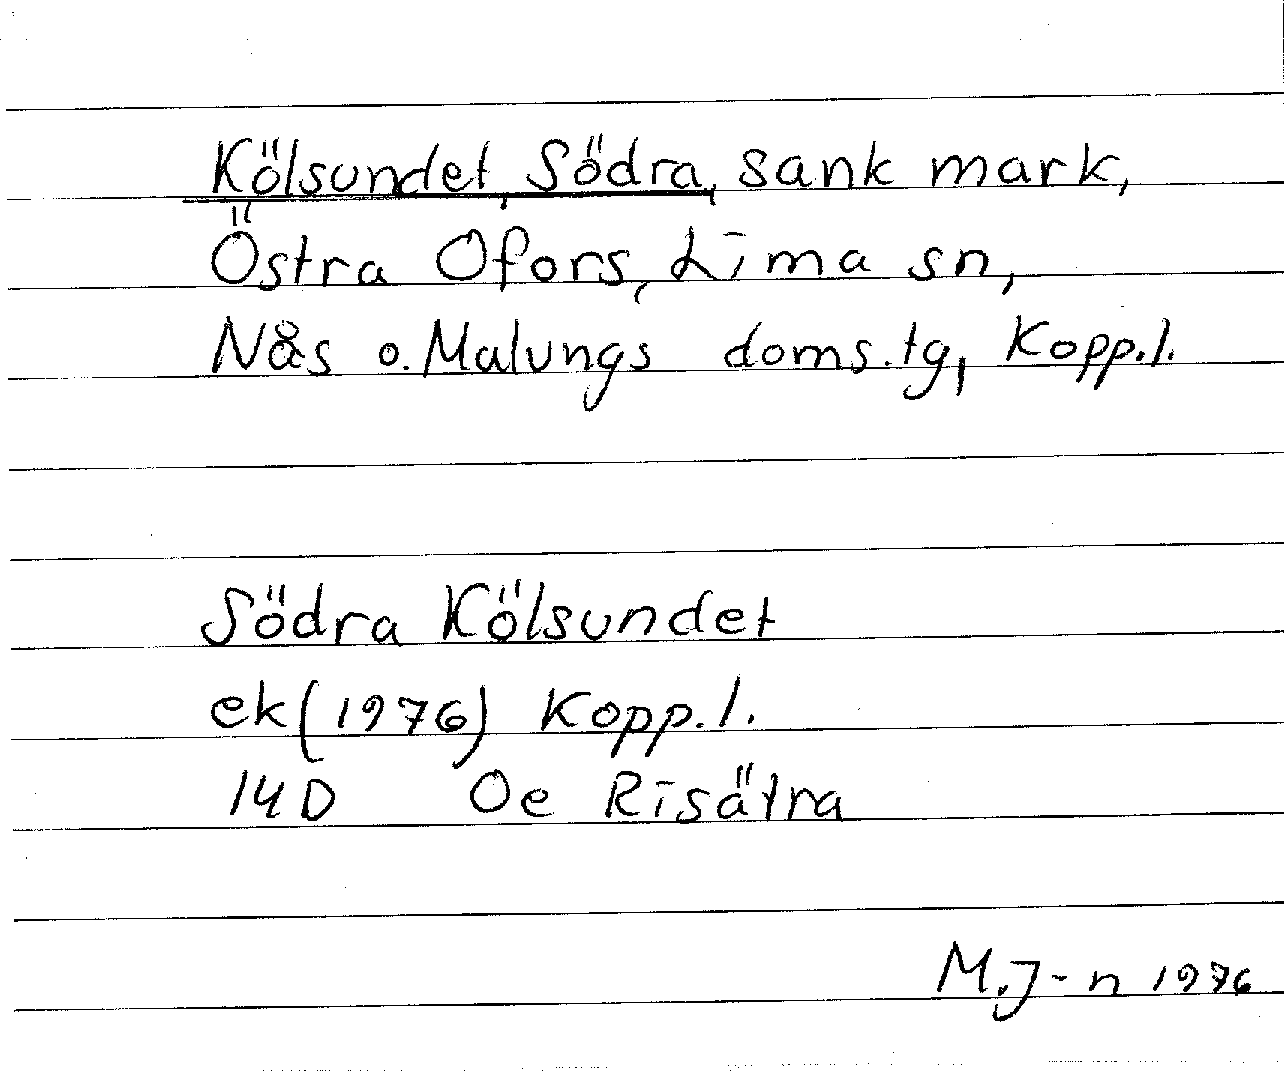 Kölsundet, Södra, sank mark,
Östra Ofors, Lima sn,
Nås o. Malungs doms.tg, Kopp.l.
Södra Kölsundet
ek(1976) Kopp.l.
14D Oe Risätra
M.J-n 1976